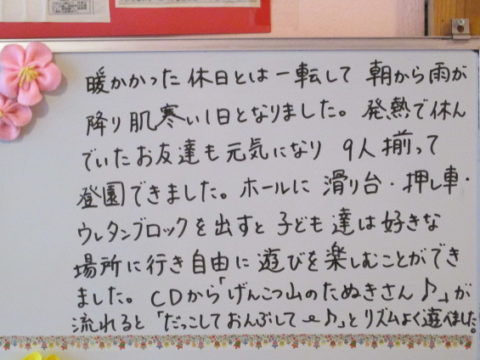 暖かかった休日とは一転して 朝から雨が
降り肌寒い1日となりました。発熱で休ん
でいたお友達も元気になり 9人揃って
登園できました。ホールに 滑り台・押し車・
ウレタンブロックを出すと子ども達は好きな
場所に行き自由に遊びを楽しむことができ
ました。CDから「げんこつ山のたぬきさん♪」が
流れると「だっこしておんぶして〜♪」とリズムよく遊べました。